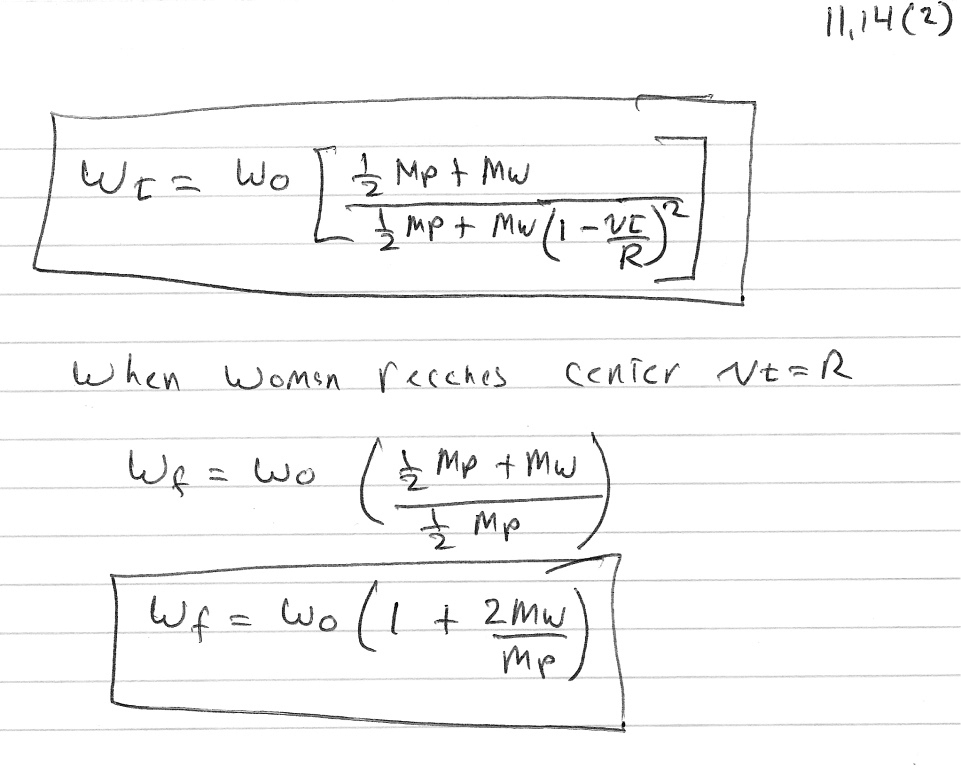 11.14(2)
ωt = ω0 [ (½ Mp + Mw) / (½ Mp + Mw (1 - vt/R)²) ]
When woman reaches center vt = R
ωf = ω0 ( (½ Mp + Mw) / (½ Mp) )
ωf = ω0 ( 1 + 2Mw/Mp )